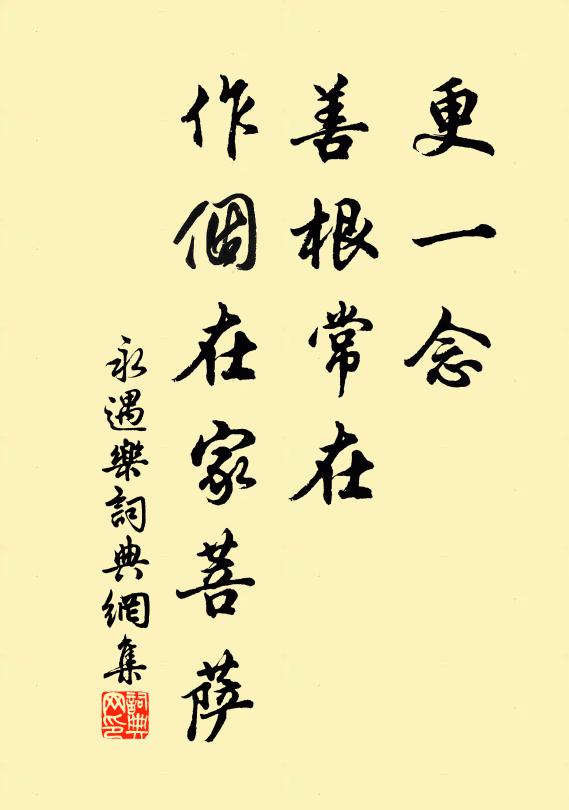 更一念
善根常在
作個在家菩薩
永遇樂詞典網集
詞典
网印